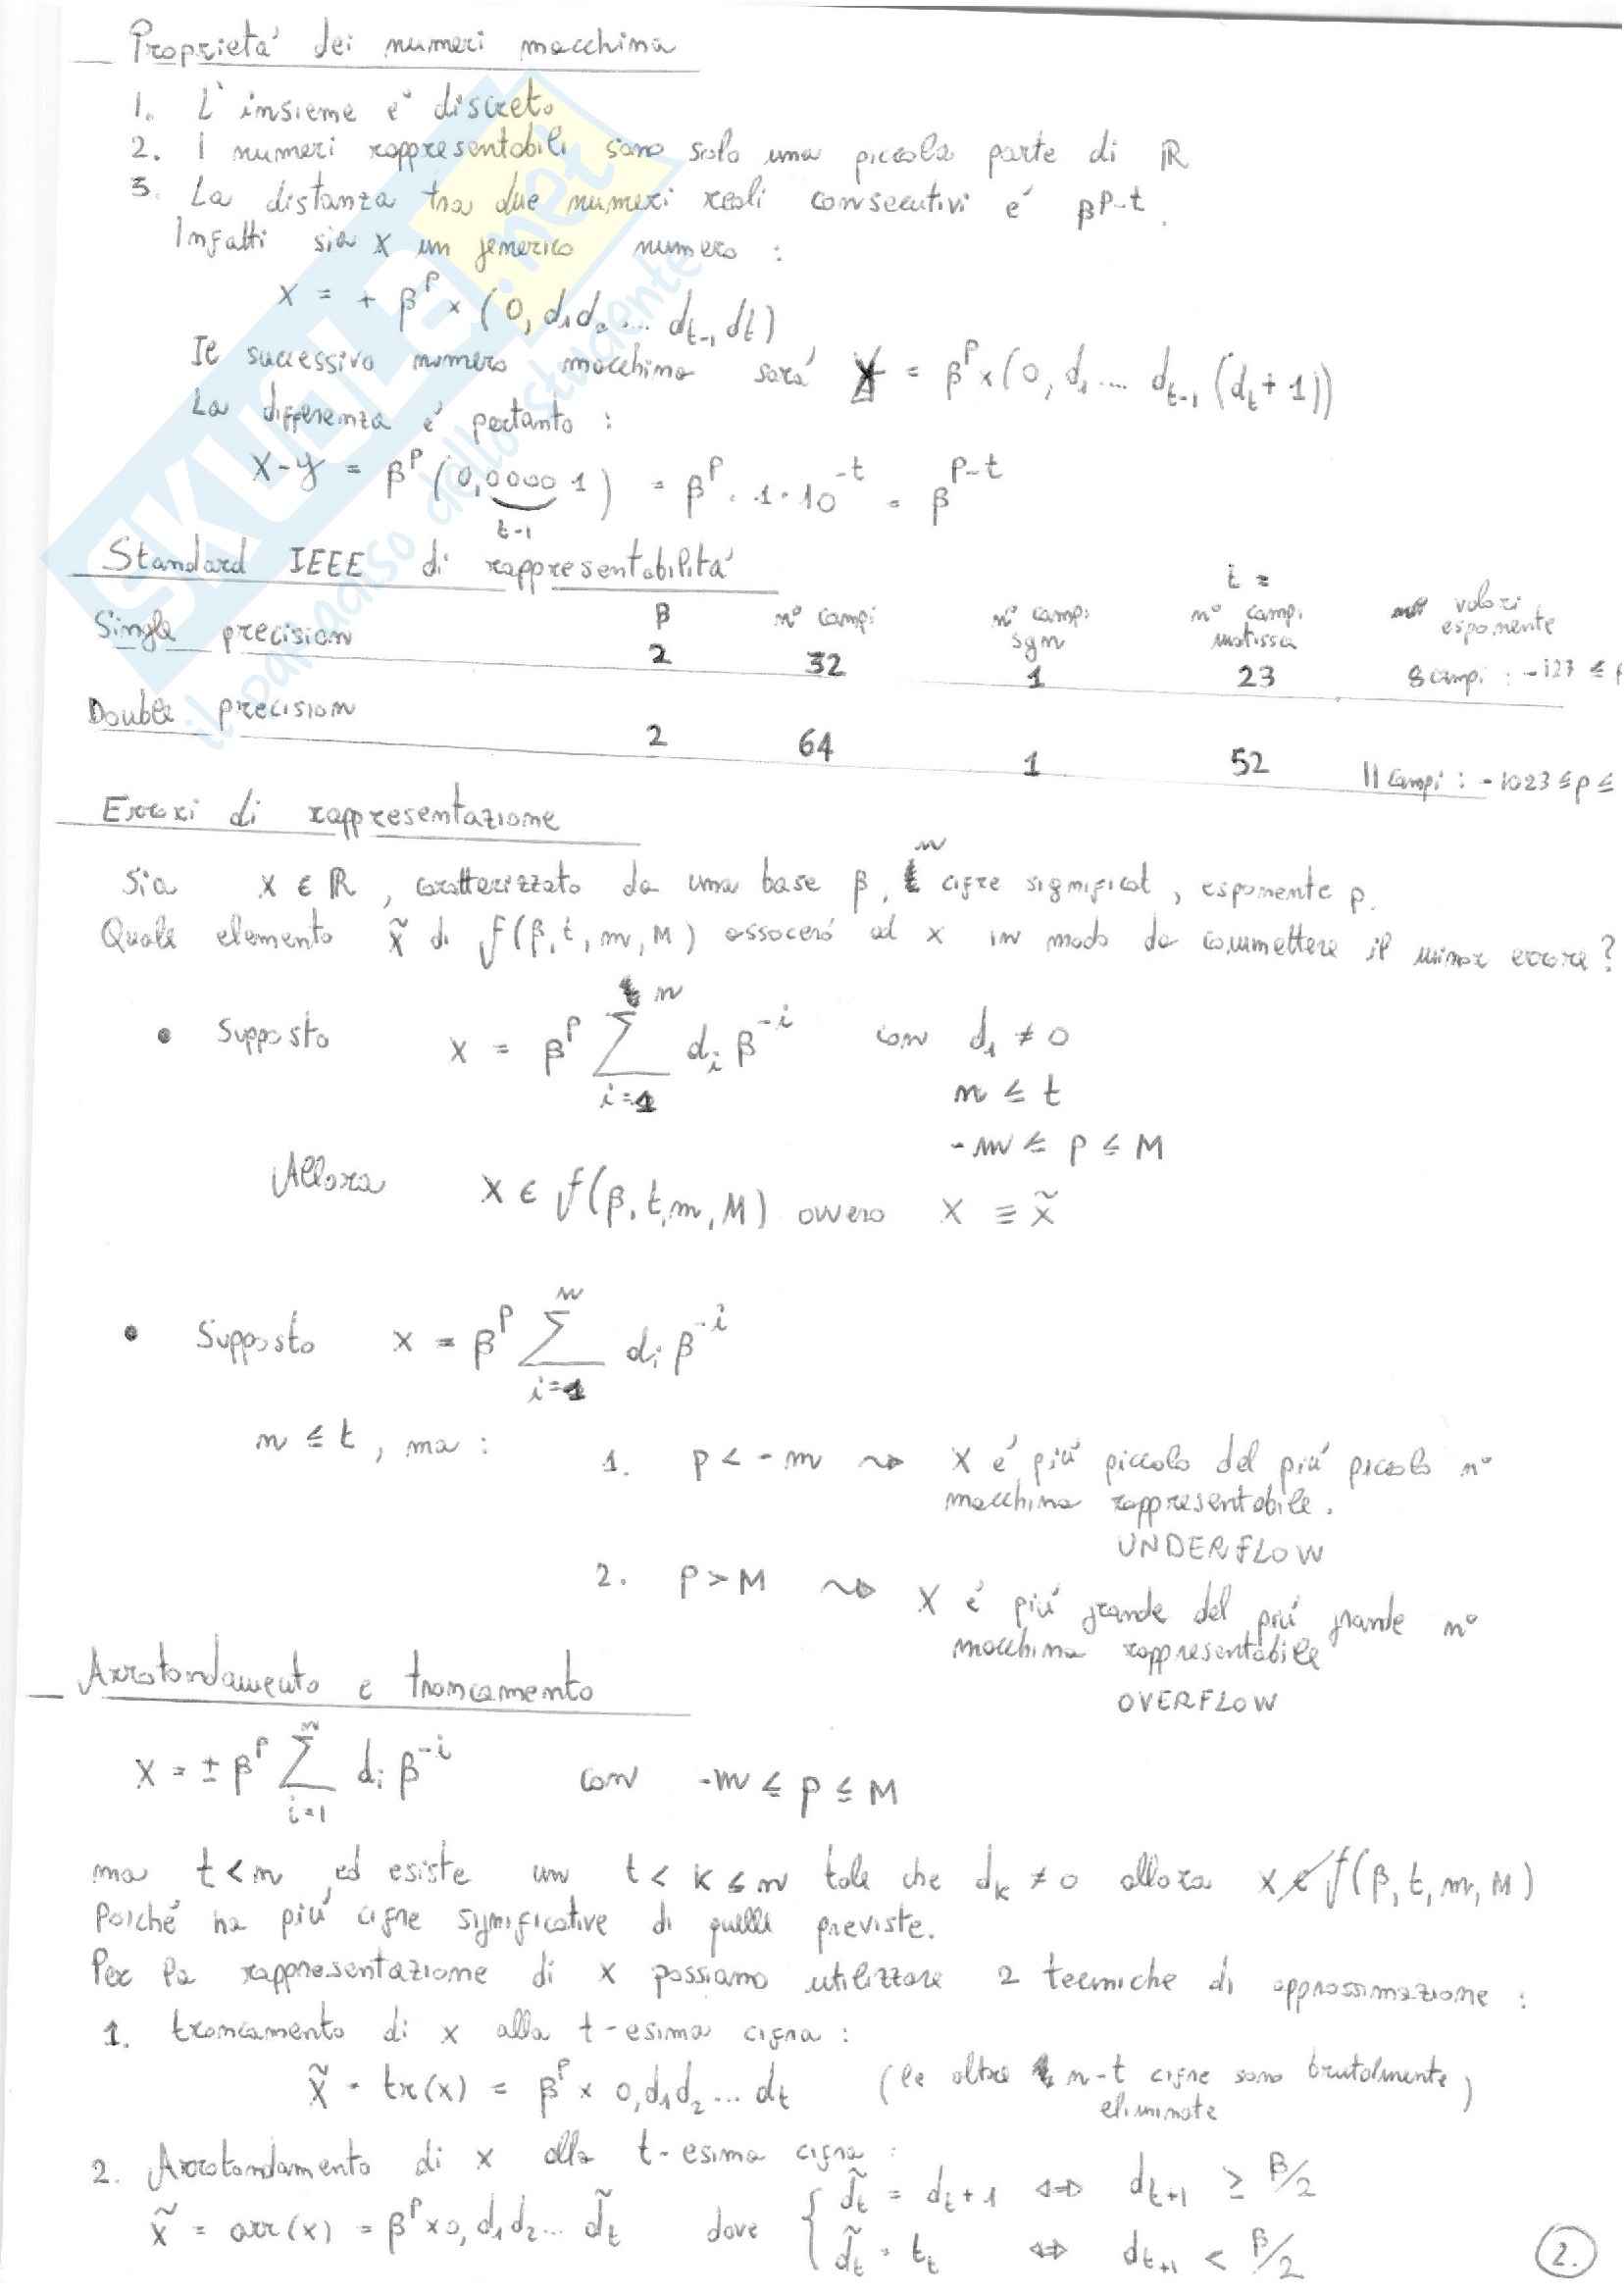 Proprietá dei numeri macchina
1. L'insieme é discreto
2. I numeri rappresentabili sono solo una piccola parte di ℝ
3. La distanza tra due numeri reali consecutivi é β^{p-t}.
Infatti sia x un generico numero :
x = + β^p × (0, d₁d₂ ... d_{t-1} dt)
Il successivo numero macchina sará y = β^p × (0, d₁ .... d_{t-1} (d_t + 1))
La differenza é pertanto :
x-y = β^p (0,0000 1) = β^p · 1 · 10^{-t} = β^{p-t}
t-1
Standard IEEE di rappresentabilitá
t =
β n° campi n° campi sgn n° campi matissa valori esponente
Single precision 2 32 1 23 8 campi : -127 ≤ p
Double precision 2 64 1 52 11 campi : -1023 ≤ p ≤
Errori di rappresentazione
Sia x ∈ ℝ, caratterizzato da una base β, n cifre significat, esponente p.
Quale elemento x̃ di f(β, t, m, M) assoceró ad x in modo da commettere il minor errore?
• Supposto x = β^p ∑_{i=1}^{n} d_i β^{-i} con d₁ ≠ 0
n ≤ t
-m ≤ p ≤ M
Allora x ∈ f(β, t, m, M) ovvero x ≡ x̃
• Supposto x = β^p ∑_{i=1}^{n} d_i β^{-i}
n ≤ t, ma : 1. p < -m ⇝ x é piú piccolo del piú piccolo n°
macchina rappresentabile.
UNDERFLOW
2. p > M ⇝ x é piú grande del piú grande n°
macchina rappresentabile
OVERFLOW
Arrotondamento e troncamento
x = ± β^p ∑_{i=1}^{n} d_i β^{-i} con -m ≤ p ≤ M
ma t < n ed esiste un t < k ≤ n tale che d_k ≠ 0 allora x ∉ f(β, t, m, M)
Poiché ha piú cifre significative di quelle previste.
Per la rappresentazione di x possiamo utilizzare 2 tecniche di approssimazione :
1. troncamento di x alla t-esima cifra :
x̃ = tr(x) = β^p × 0,d₁d₂ ... d_t (le altre n-t cifre sono brutalmente eliminate)
2. Arrotondamento di x alla t-esima cifra :
x̃ = arr(x) = β^p × 0, d₁ d₂ ... d̃_t dove { d̃_t = d_t + 1 ⇔ d_{t+1} ≥ β/2
d̃_t = t_t ⇔ d_{t+1} < β/2
2.
SKUOLA.net
il paradiso dello studente